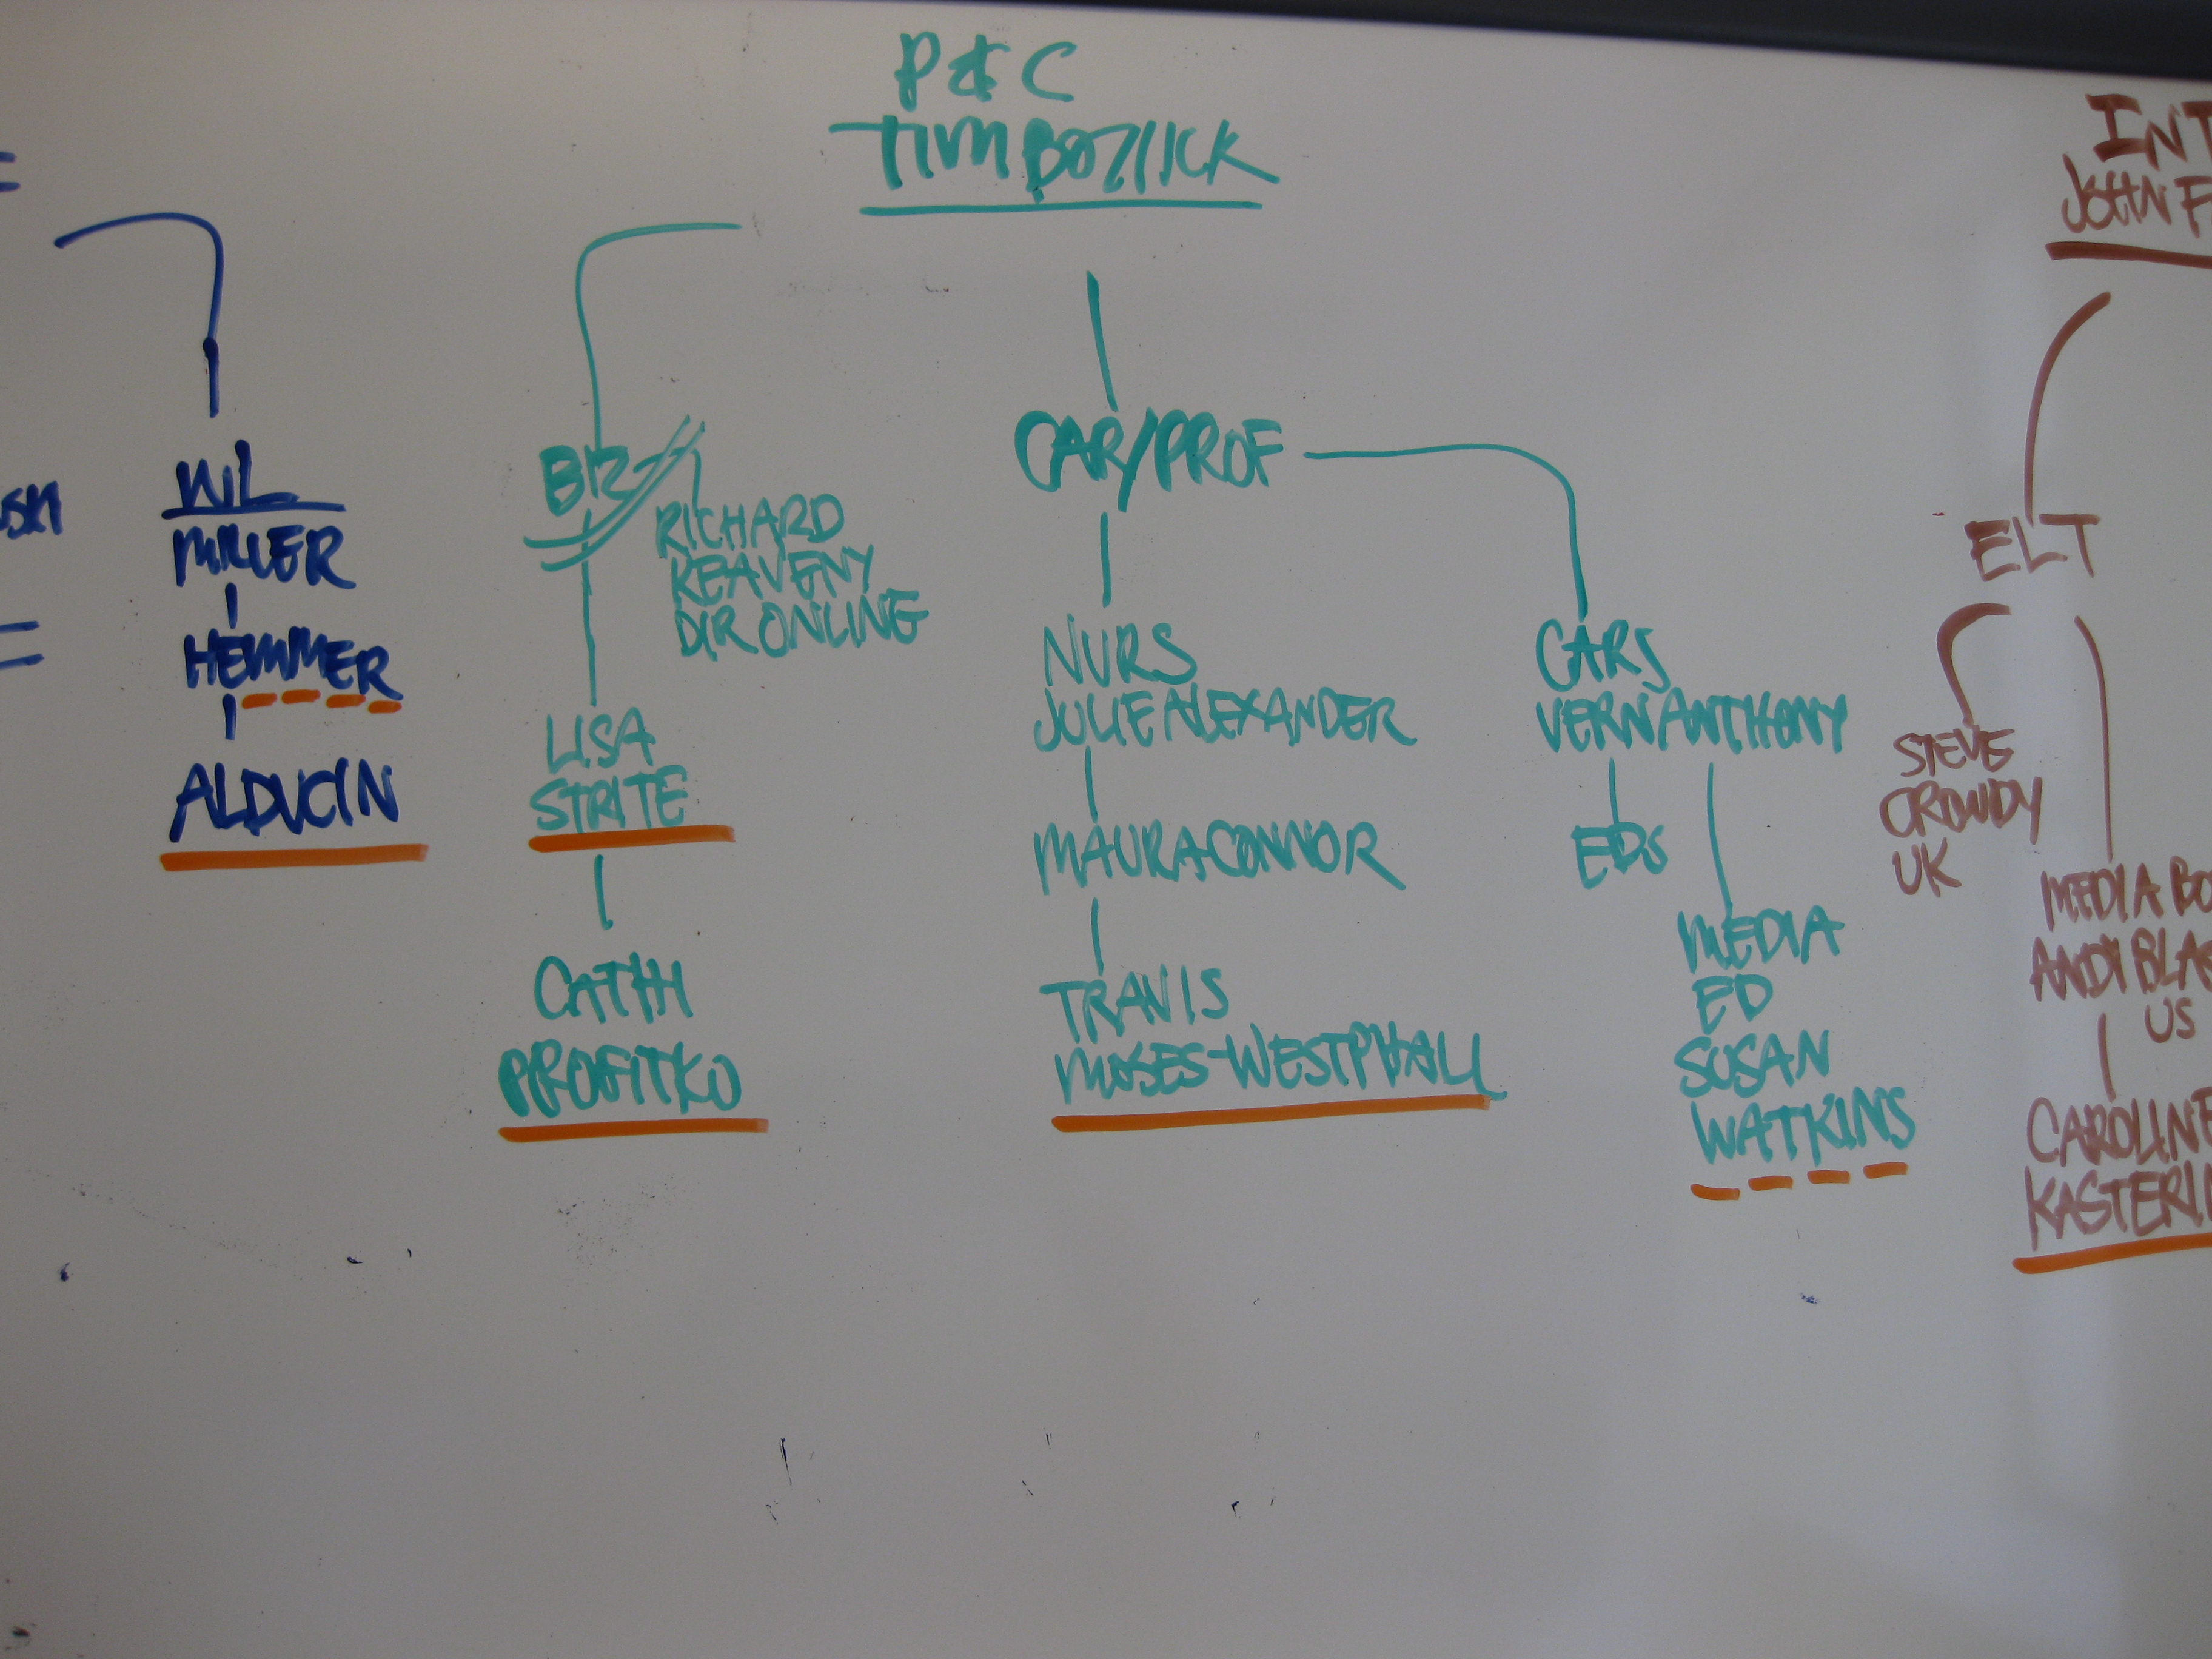 P & C
TIM BOZIICK
WL
MILLER
HEMMER
ALDUCIN
BIZ
RICHARD
KEAVENY
DIR ONLINE
LISA
STRITE
CATHI
PROFITKO
CAR/PROF
NURS
JULIE ALEXANDER
MAURA CONNOR
TRAVIS
MOSES-WESTPHALL
CARS
VERN ANTHONY
EDS
MEDIA
ED
SUSAN
WATKINS
INT
JOHN F
ELT
STEVE
CROWDY
UK
MEDIA BO
ANDI BLAC
US
CAROLINE
KASTERIN